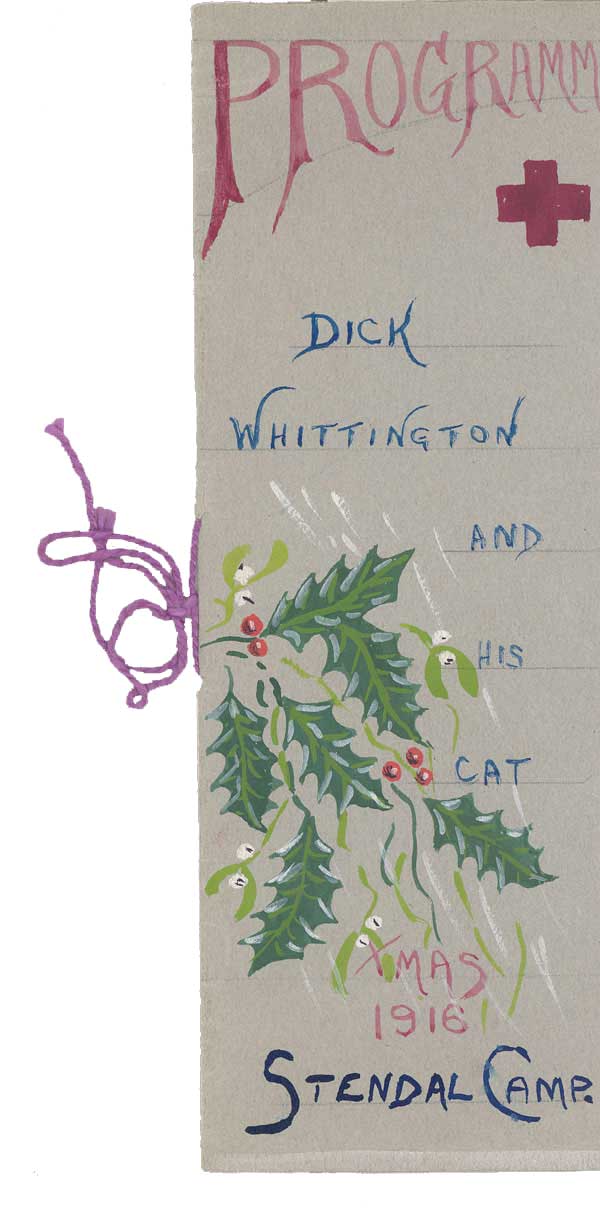 PROGRAMM
DICK
WHITTINGTON
AND
HIS
CAT
XMAS
1916
STENDAL CAMP.